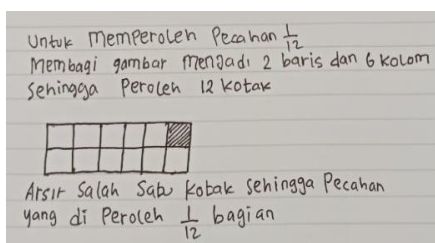 Untuk Memperoleh Pecahan 1/12
Membagi gambar menjadi 2 baris dan 6 kolom
Sehingga Peroleh 12 kotak
Arsir Salah Satu kotak sehingga Pecahan
yang di Peroleh 1/12 bagian